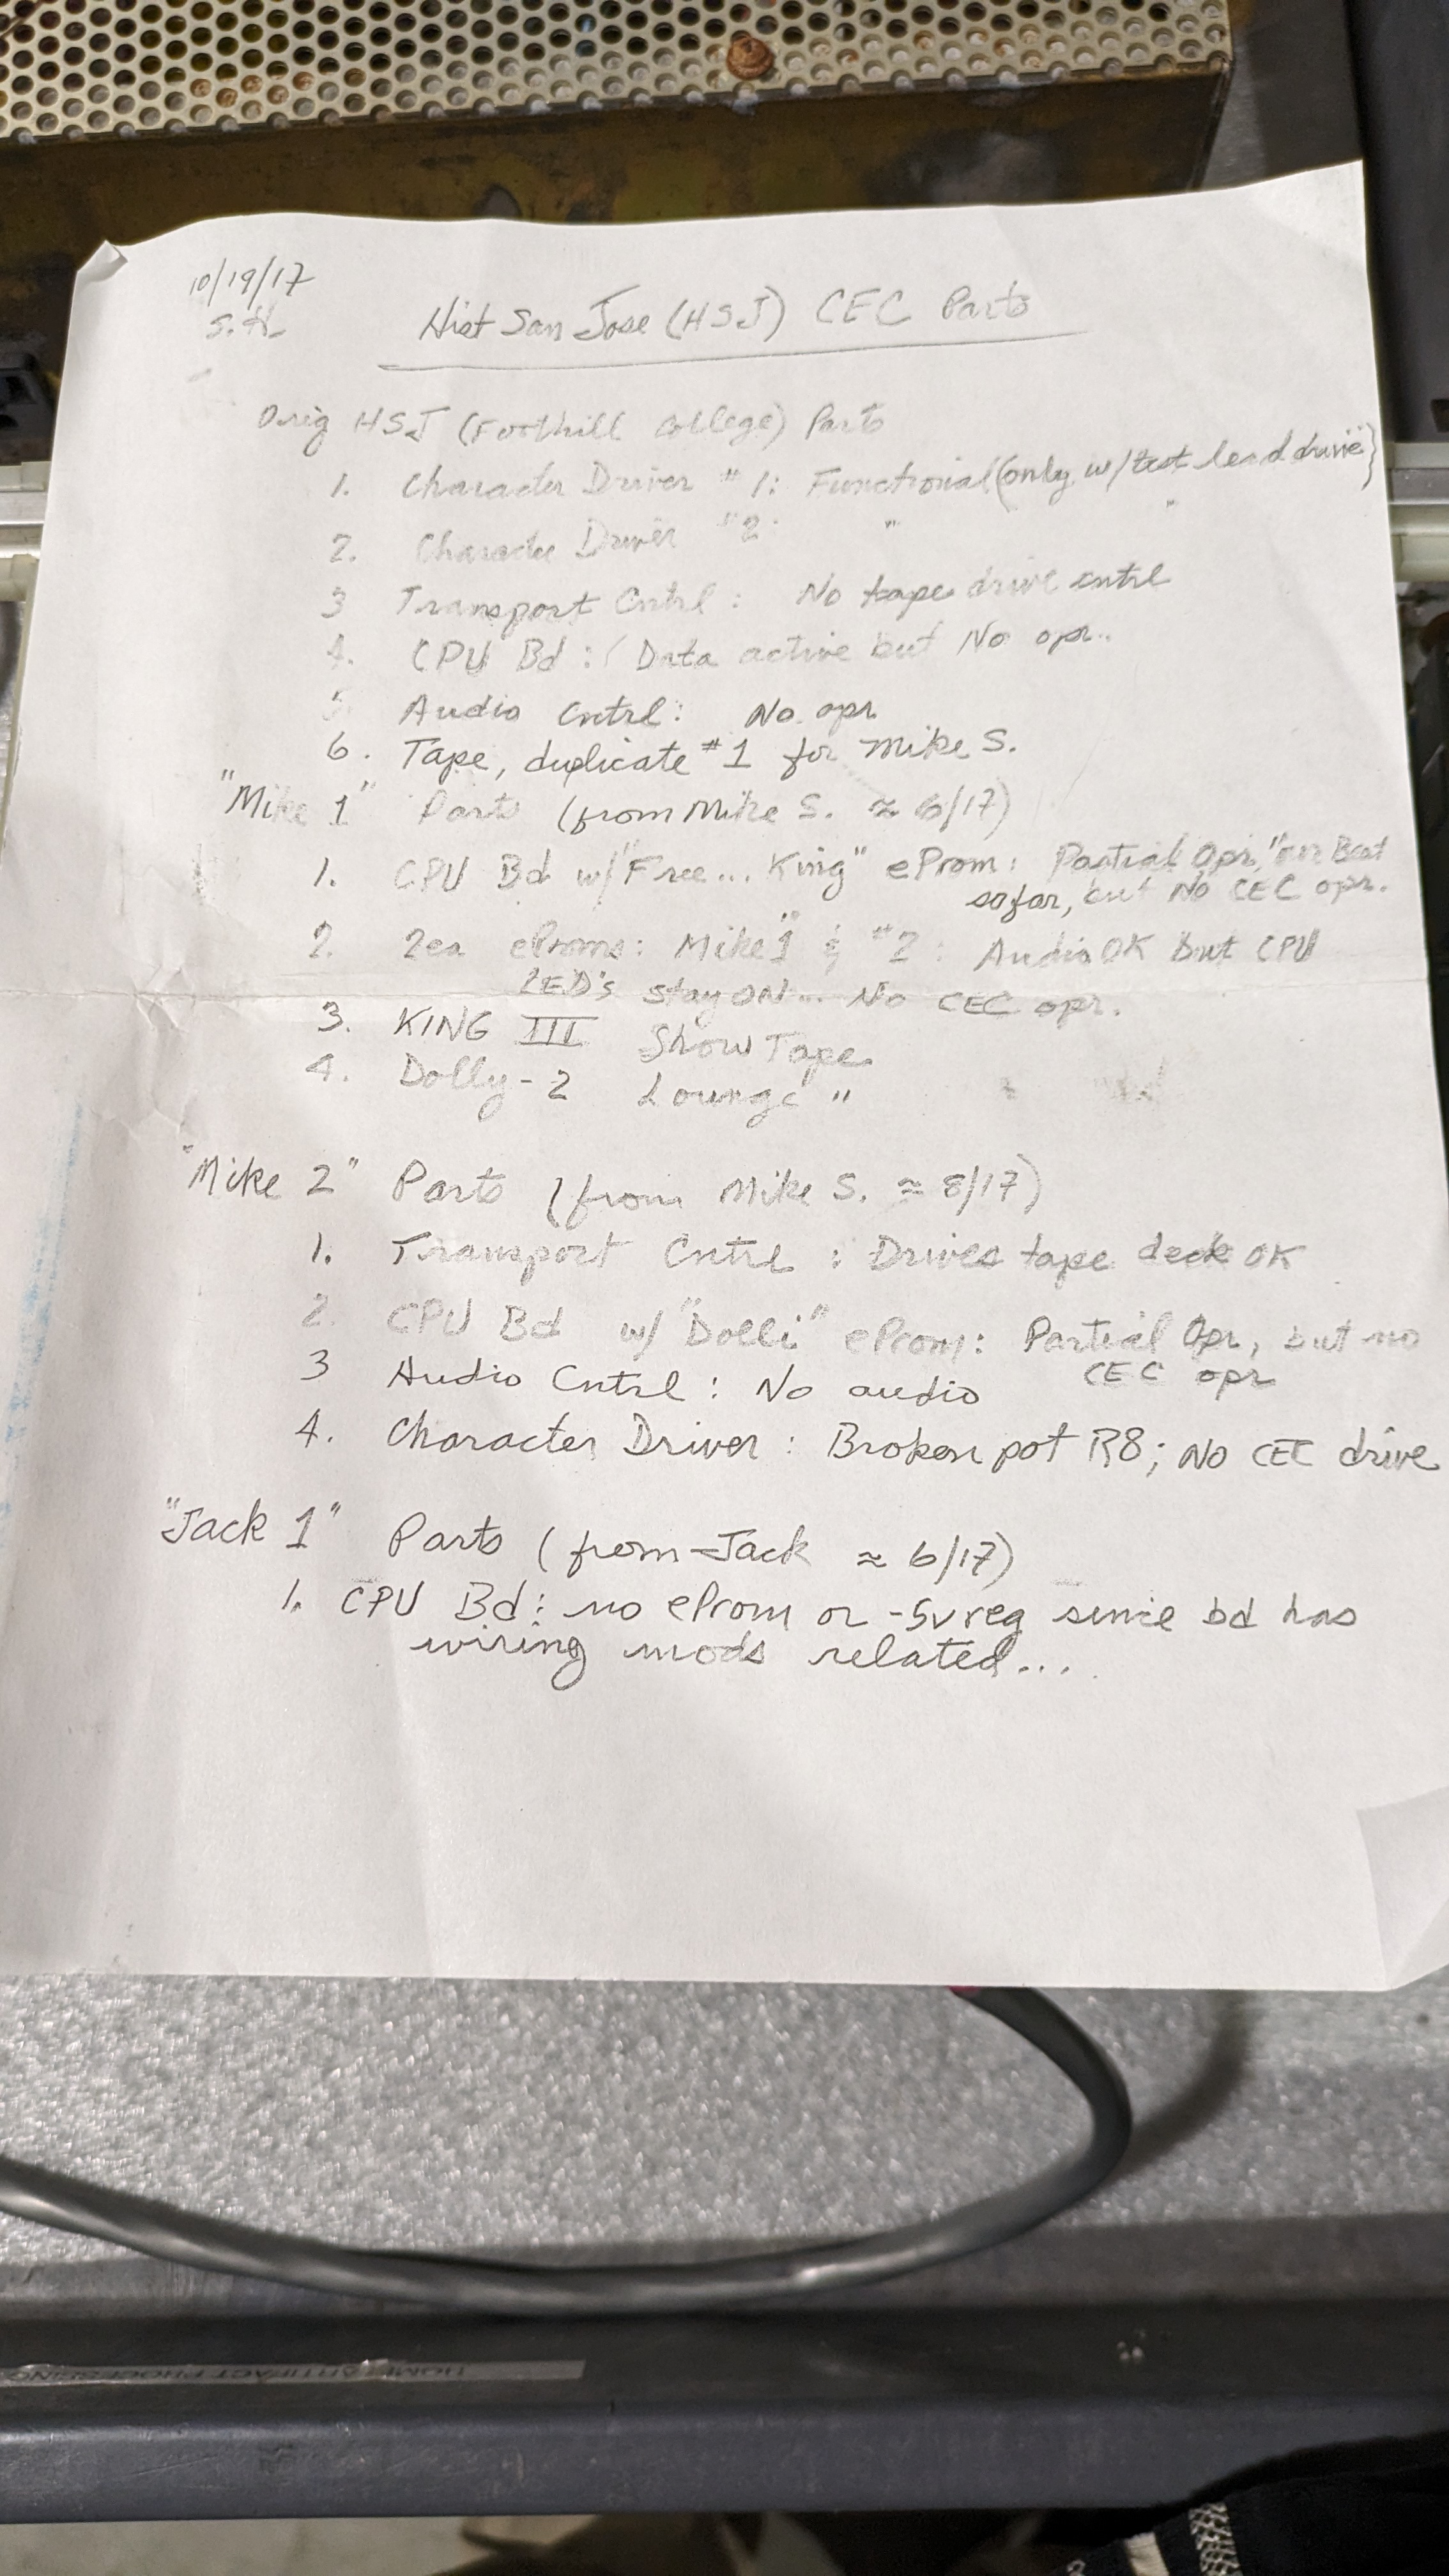 10/19/17
S.H.
Hist San Jose (HSJ) CEC Parts
Orig HSJ (Foothill College) Parts
1. Character Driver #1: Functional (only w/test lead drive)
2. Character Driver #2: " "
3 Transport Cntrl: No tape drive cntrl
4. CPU Bd: Data active but No opr..
5. Audio Cntrl: No opr
6. Tape, duplicate #1 for Mike S.
"Mike 1" Parts (from Mike S. ≈ 6/17)
1. CPU Bd w/"Free... King" eProm: Partial Opr, Best
so far, but No CEC opr.
2. 2ea eProms: Mike "1 & #2: Audio OK but CPU
LED's stay ON... No CEC opr.
3. KING III Show Tape
4. Dolly-2 Lounge "
"Mike 2" Parts (from Mike S. ≈ 8/17)
1. Transport Cntrl: Drives tape deck OK
2. CPU Bd w/"Dolli" eProm: Partial Opr, but no
CEC opr
3 Audio Cntrl: No audio
4. Character Driver: Broken pot R8; No CEC drive
"Jack 1" Parts (from Jack ≈ 6/17)
1. CPU Bd: no eProm or -5v reg since bd has
wiring mods related...